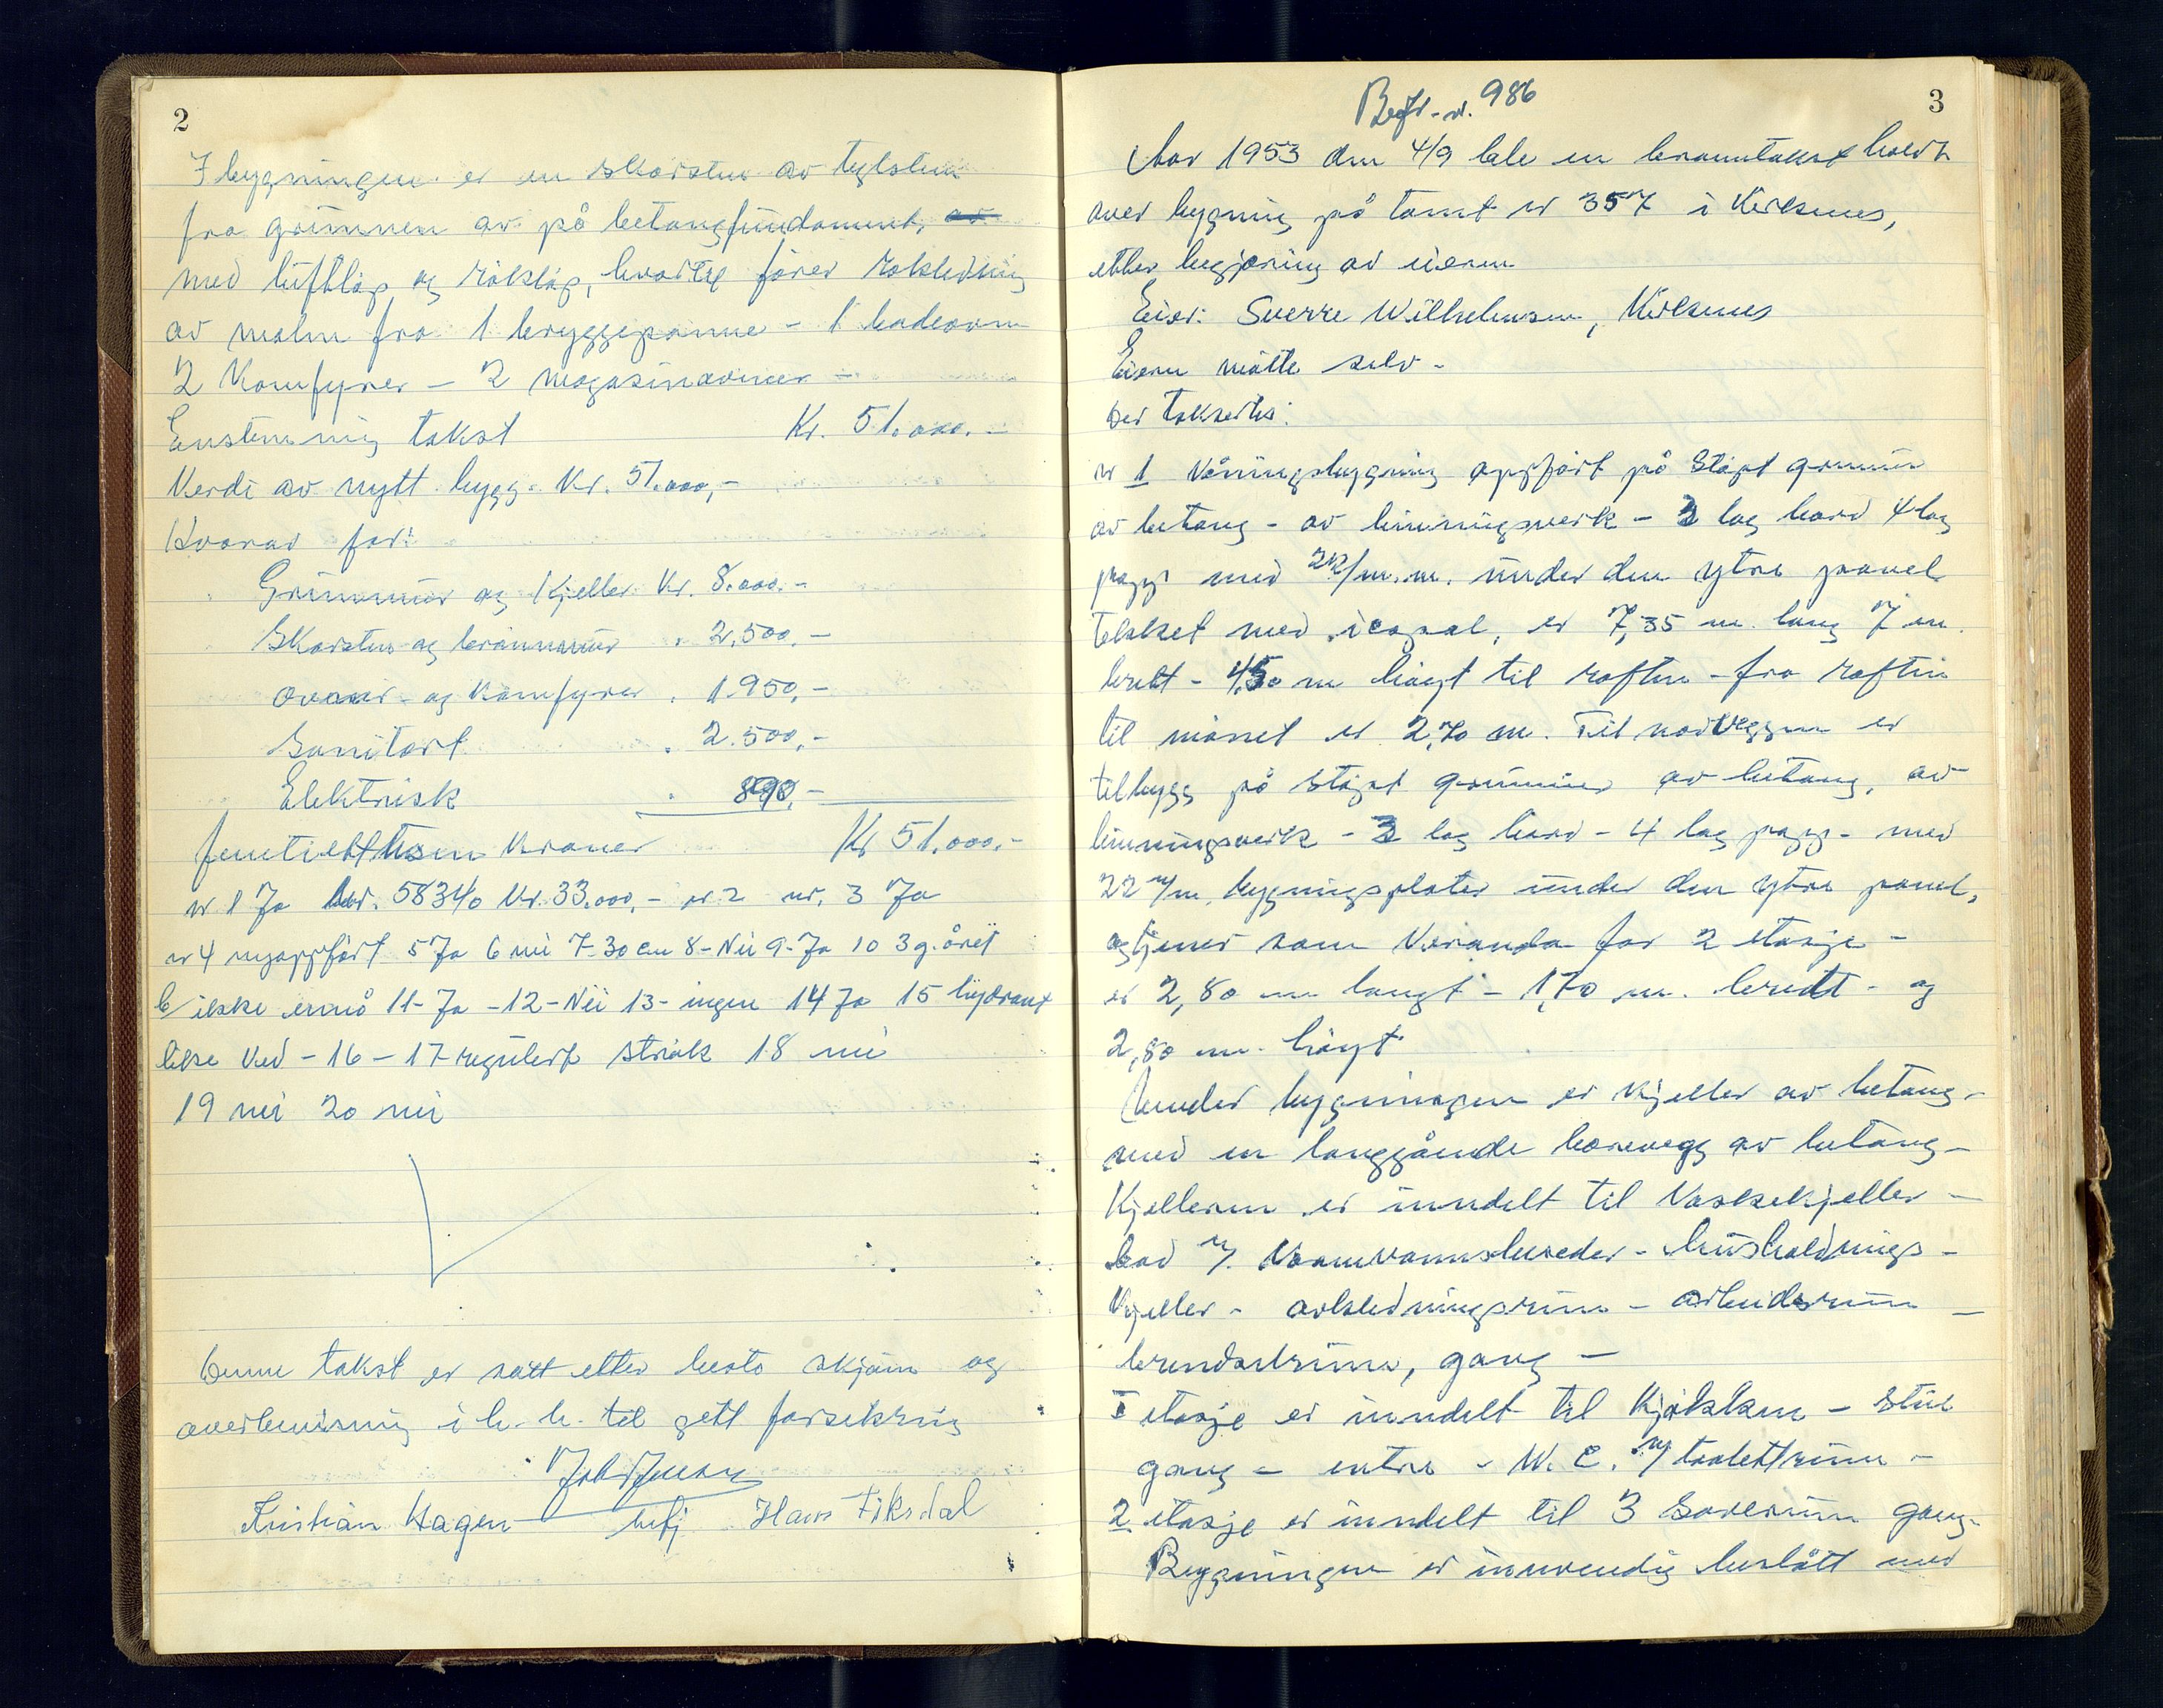 2
I bygningen er en skorsten av teglsten
fra grunnen av på betongfundament, av
med luftløp og røkløp, hvortil fører rökledning
av malm fra 1 bryggepanne - 1 badeovn
2 Komfyrer - 2 magasinovner -
Enstemmig takst Kr. 51.000.-
Verdi av nytt bygg. Kr. 51.000,-
Hvorav for:
Grunnmur og Kjeller Kr. 8.000.-
Skorsten og brannmur " 2.500.-
Ovner og Komfyrer " 1.950,-
Sanitært " 2.500,-
Elektrisk " 890,-
femtiettusen Kroner Kr 51.000.-
nr 1 Ja 58340 Kr. 33.000,- nr 2 nr. 3 Ja
nr 4 nyoppført 5 Ja 6 nei 7-30 cm 8-Nei 9-Ja 10 3 g. året
b/ ikke ennå 11-Ja -12-Nei 13- ingen 14 Ja 15 hydrant
like ved - 16 - 17 regulert strøk 18 nei
19 nei 20 nei
Denne takst er satt etter beste skjønn og
overbevisning i h. h. til gitt forsikring
Kristian Hagen Hans Fiksdal
3
Begj. nr. 986
Aar 1953 den 4/9 ble en branntakst holdt
over bygning på tomt nr 357 i Kirkenes,
etter begjæring av eieren
Eier: Sverre Wilhelmsen, Kirkenes
Eieren møtte selv -
Der taksertes:
nr 1 Våningsbygning oppført på støpt grunnmur
av betong - av bindingsverk - 3 lag bord 4 lag
papp med 22/m.m. under den ytre panel
tekket med icopal, er 7,35 m. lang 7 m.
bredt - 4,50 m høyt til raften - fra raften
til mønet er 2,70 m. Til nordveggen er
tilbygg på støpt grunnmur av betong, av
bindingsverk - 3 lag bord - 4 lag papp - med
22 m/m bygningsplater under den ytre panel,
og tjener som Veranda for 2 etasje -
er 2,80 m langt - 1,70 m. bredt - og
2,80 m. høyt
Under bygningen er Kjeller av betong -
med en langgående bærevegg av betong -
Kjelleren er inndelt til Vaskekjeller -
bad m/ Varmvannsbereder - husholdnings -
Kjeller - avkledningsrum - arbeidsrum -
brendselsrum, gang -
I etasje er inndelt til Kjøkken - stue
gang - entre - W. C. m/ toalettrum -
2 etasje er inndelt til 3 Soverum gang -
Bygningen er innvendig beslått med